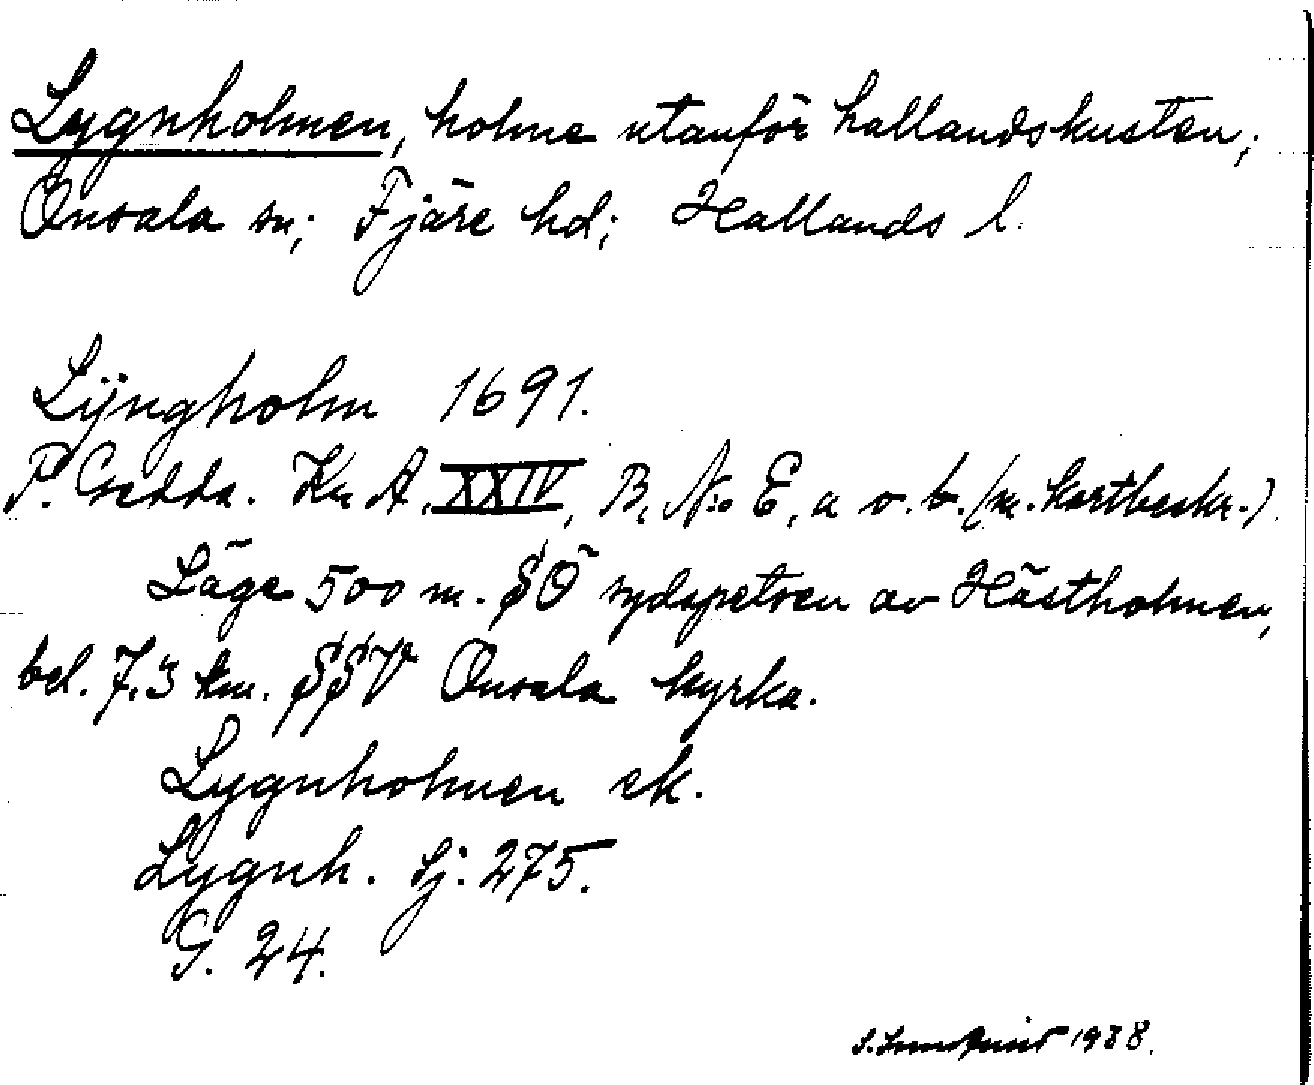 Lygnholmen, holme utanför hallandskusten;
Onsala sn; Fjäre hd; Hallands l.
Lÿngholm 1691.
P. Gedda. Kr A. XXIV, B, N:o E, a o. b. (m. kartbeskr.)
Läge 500 m. SÖ sydspetsen av Hästholmen,
bel. 7,3 km. SSV Onsala kyrka.
Lygnholmen ek.
Lygnh. Sj: 275.
G. 24.
1938.